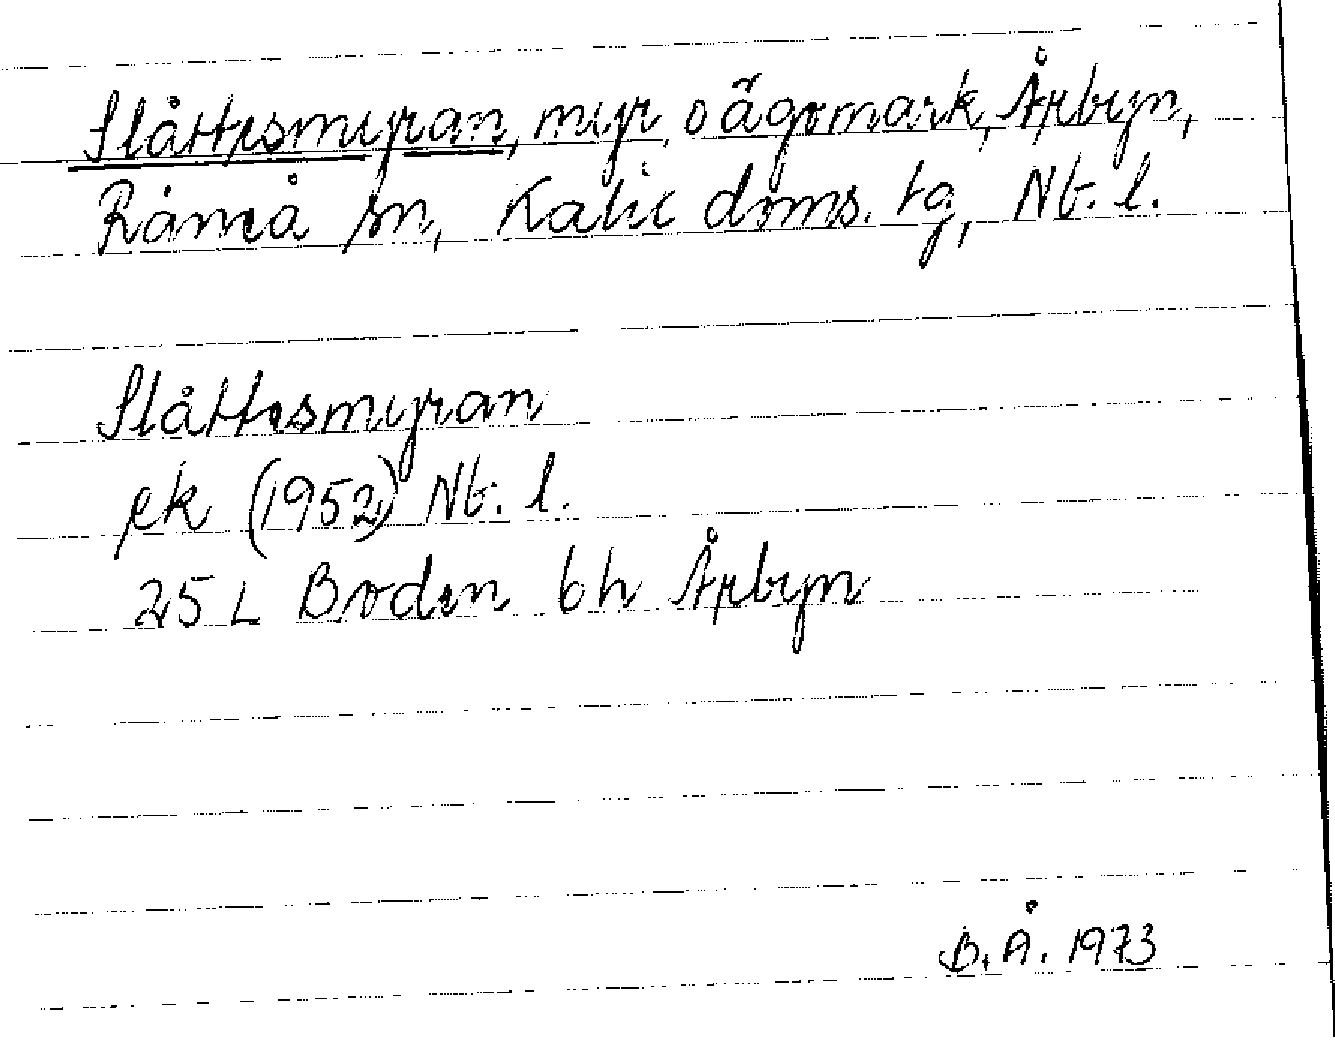 Slåttesmyran, myr, o ägomark, Årbyn,
Råneå sn, Kalix doms. tg, Nb. l.
Slåttesmyran
ek (1952) Nb. l.
25 L Boden 6h Årbyn
B.Å. 1973